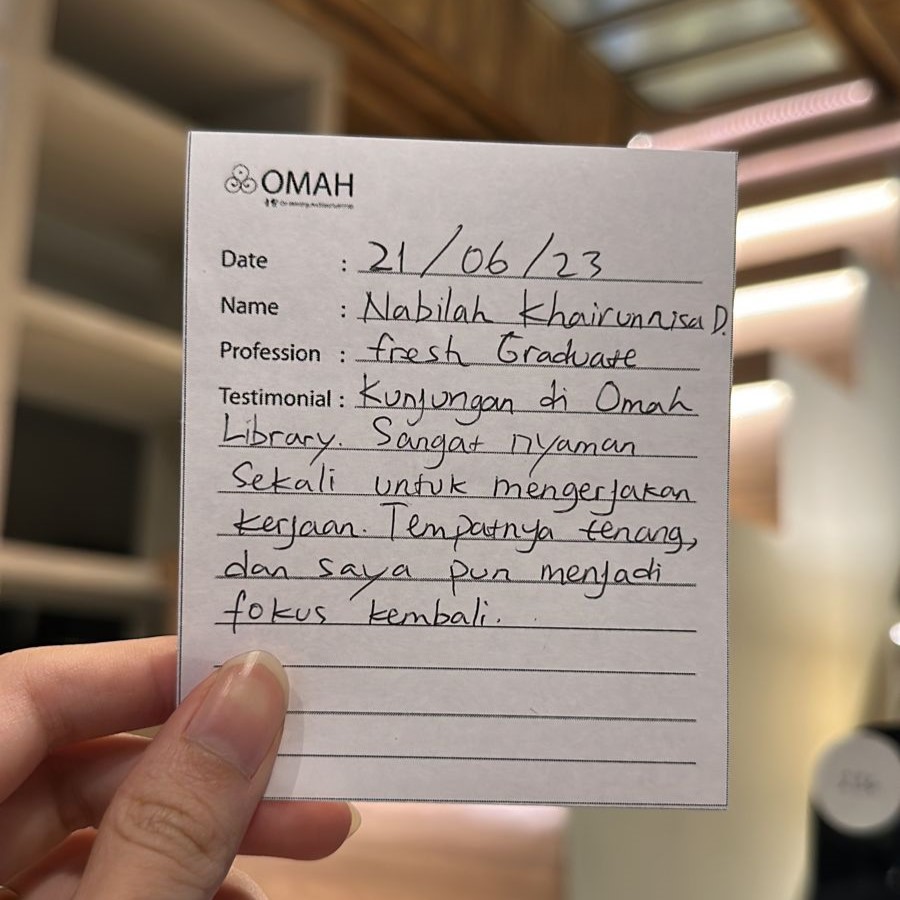 OMAH
Date : 21/06/23
Name : Nabilah Khairunnisa D.
Profession : fresh Graduate
Testimonial : Kunjungan di Omah
Library. Sangat nyaman
Sekali untuk mengerjakan
kerjaan. Tempatnya tenang,
dan saya pun menjadi
fokus kembali.